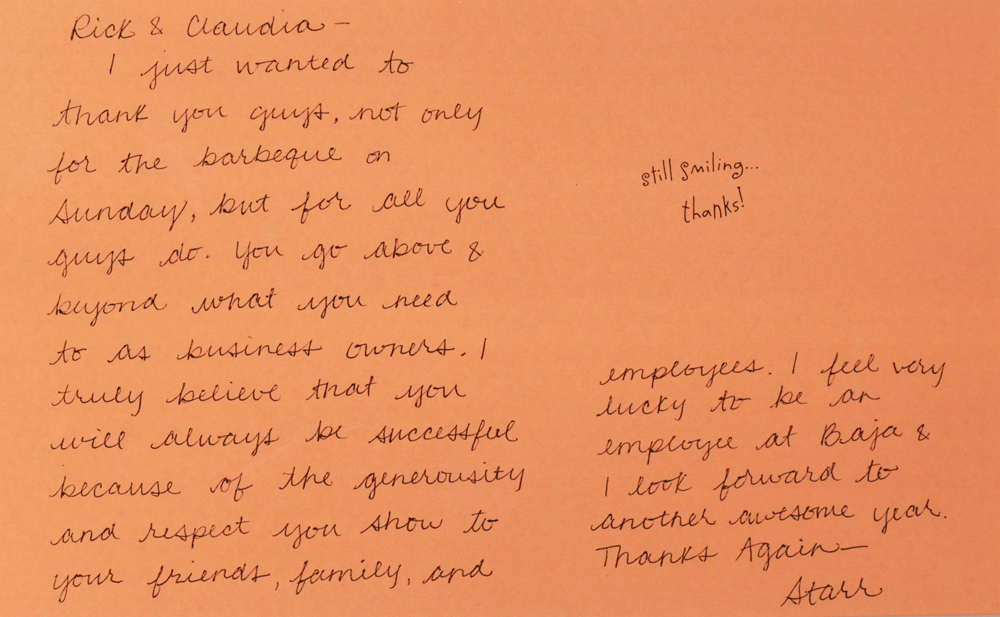 Rick & Claudia —
I just wanted to
thank you guys, not only
for the barbeque on
Sunday, but for all you
guys do. You go above &
beyond what you need
to as business owners. I
truly believe that you
will always be successful
because of the generousity
and respect you show to
your friends, family, and
still smiling...
thanks!
employees. I feel very
lucky to be an
employee at Baja &
I look forward to
another awesome year.
Thanks Again—
Starr